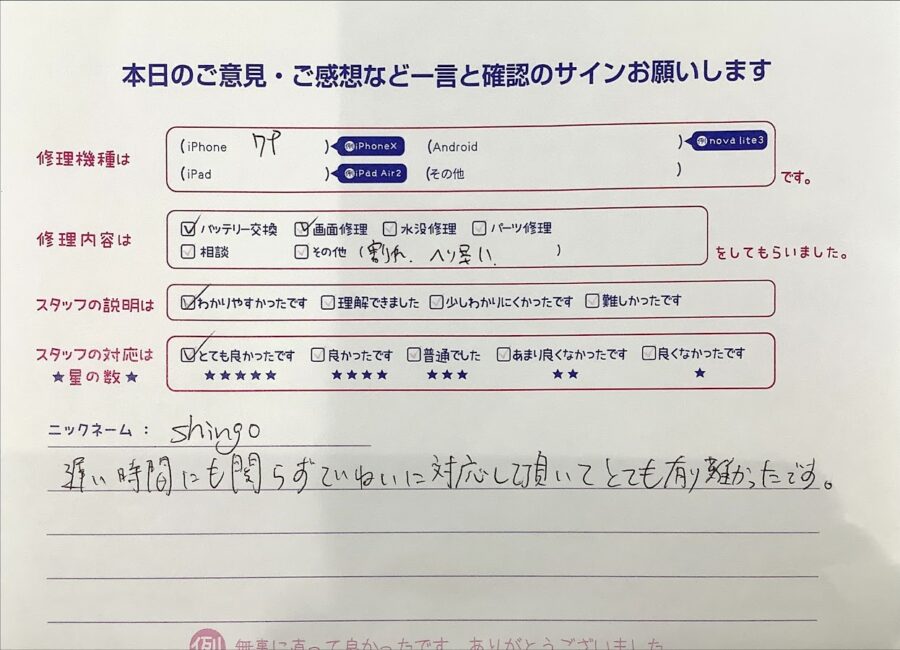 本日のご意見・ご感想など一言と確認のサインお願いします
修理機種は
(iPhone 7P ) 例iPhoneX (Android ) 例nova lite3
(iPad ) 例iPad Air2 (その他 ) です。
修理内容は
バッテリー交換 画面修理 水没修理 パーツ修理
相談 その他 (割れ、 ) をしてもらいました。
スタッフの説明は わかりやすかったです 理解できました 少しわかりにくかったです 難しかったです
スタッフの対応は とても良かったです 良かったです 普通でした あまり良くなかったです 良くなかったです
★星の数★ ★★★★★ ★★★★ ★★★ ★★ ★
ニックネーム： shingo
遅い時間にも関らずていねいに対応して頂いてとても有り難かったです。
例 無事に直って良かったです。ありがとうございました